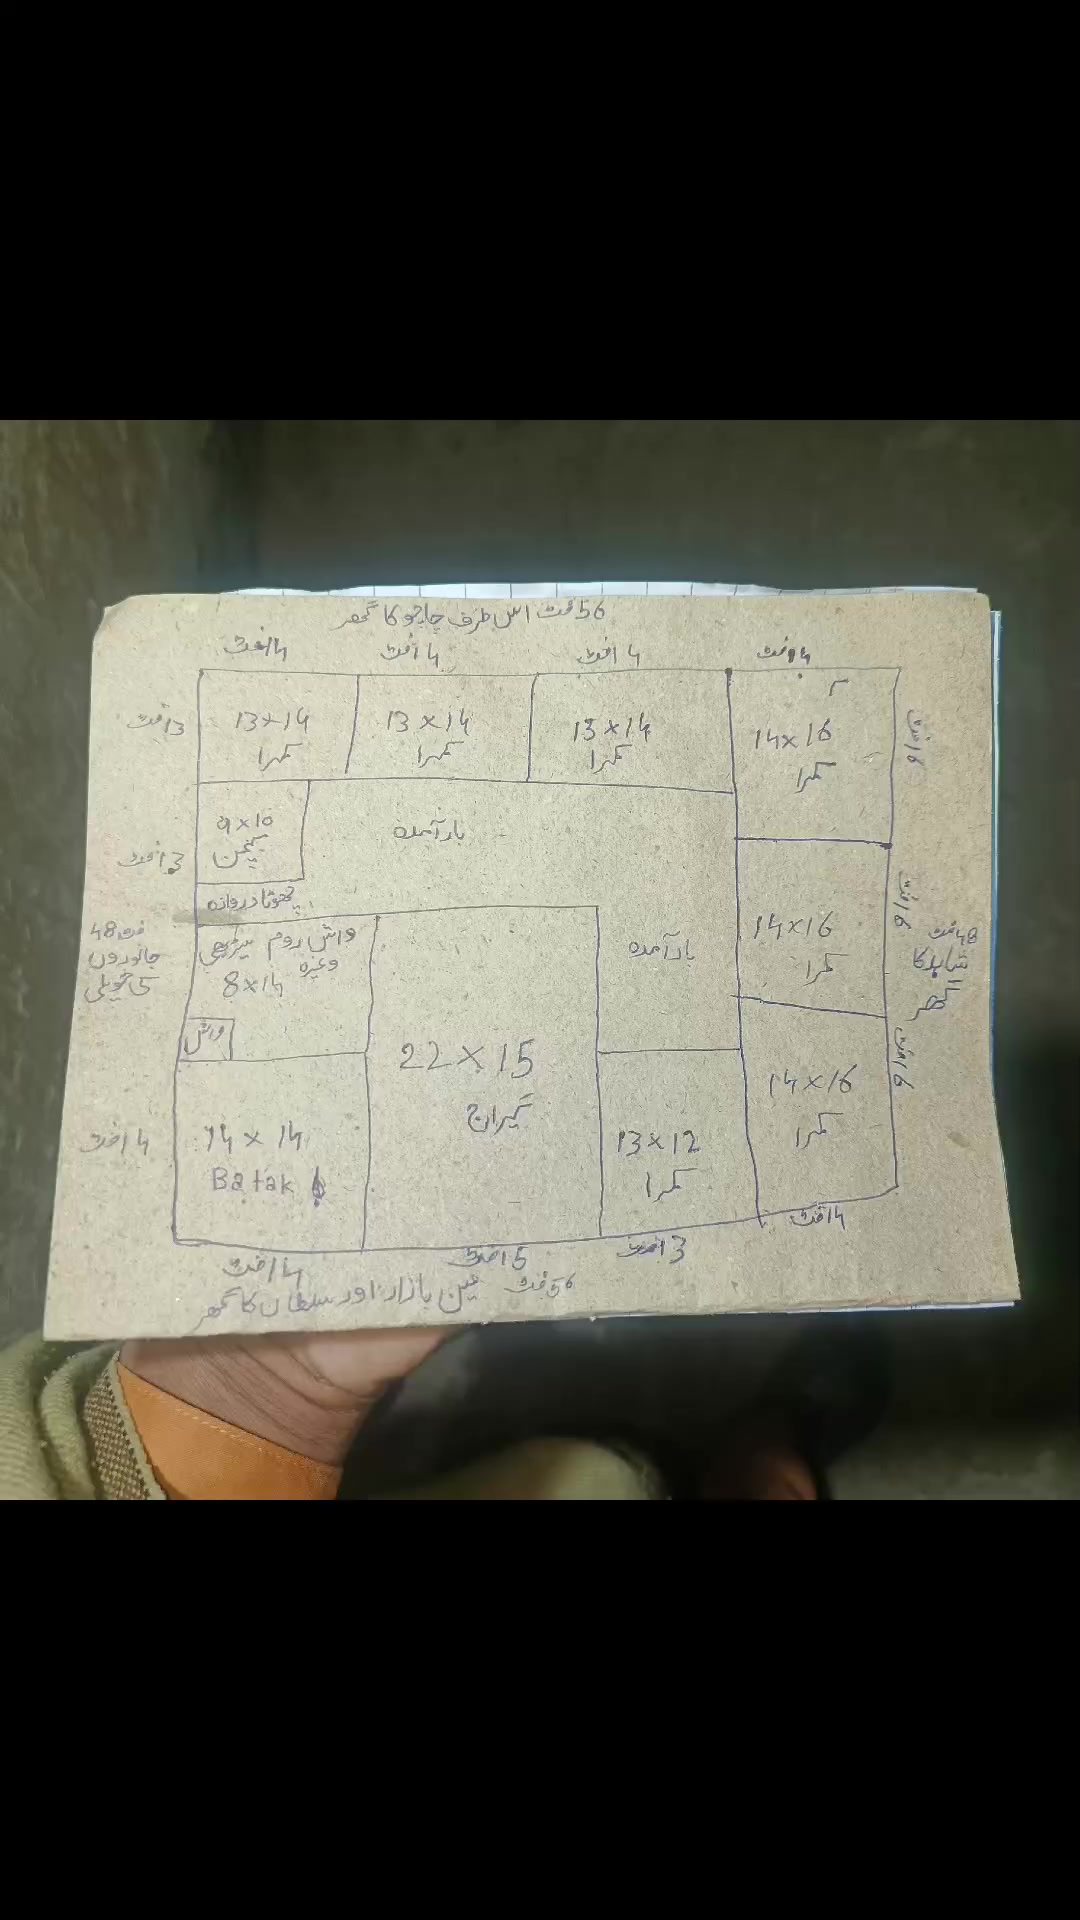 56 فٹ اس طرف چاچو کا گھر
14 فٹ
14 فٹ
14 فٹ
14 فٹ
13 فٹ
13×14
کمرا
13×14
کمرا
13×14
کمرا
14×16
کمرا
16 فٹ
13 فٹ
9×10
کیچن
بارآمدہ
چھوٹا دروازہ
48 فٹ
جانوروں
کی حویلی
واش روم سیڑھی
وغیرہ
8×14
واش
بارآمدہ
14×16
کمرا
16 فٹ
48 فٹ
شاہد کا
گھر
22×15
گیراج
14 فٹ
14×14
Batak
13×12
کمرا
14×16
کمرا
16 فٹ
14 فٹ
15 فٹ
13 فٹ
14 فٹ
56 فٹ
مین بازار اور سلمان کا گھر